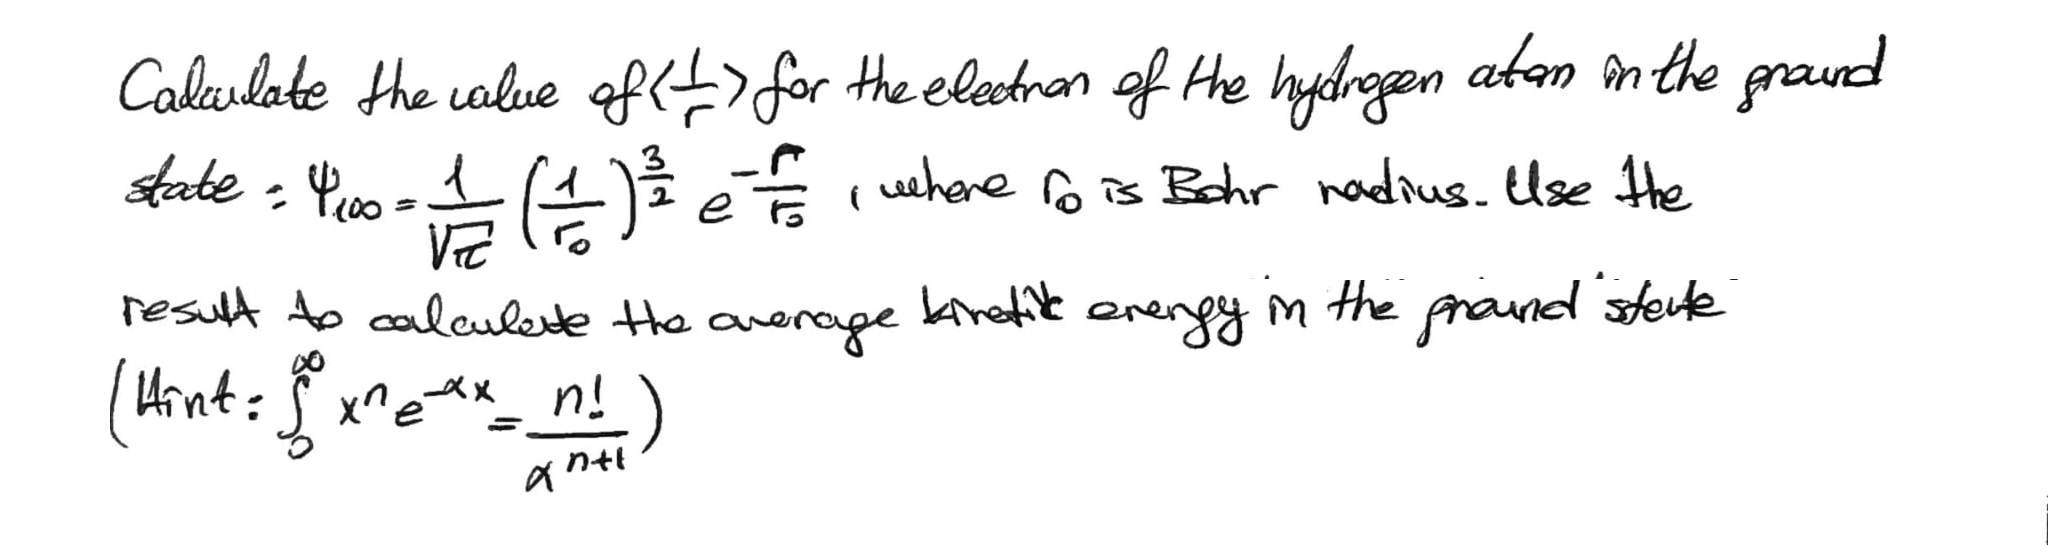 Calculate the value of <1/r> for the electron of the hydrogen atom in the ground
state : Ψ₁₀₀ = 1/√π (1/r₀)^(3/2) e^(-r/r₀) , where r₀ is Bohr radius. Use the
result to calculate the average kinetic energy in the ground state
(Hint: ∫₀^∞ xⁿ e^(-αx) = n!/α^(n+1))